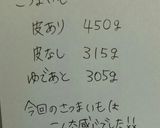 さつまいも
皮あり 450g
皮なし 315g
ゆであと 305g
今回のさつまいもは
こんな感じでした!!